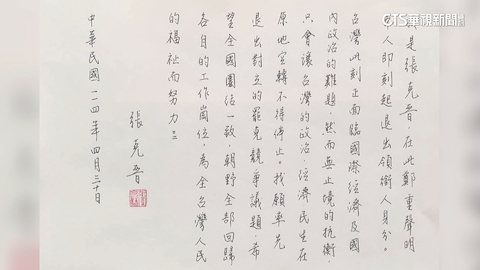 CTS華視新聞網
是張克晉,在此鄭重聲明
人即刻起退出領銜人身分。
台灣此刻正面臨國際經濟及國
內政治的難題,然而無止境的抗衡,
只會讓台灣的政治、經濟民生在
原地空轉不得停止。我願率先
退出對立的罷免競爭議題,希
望全國團結一致,朝野全部回歸
各自的工作崗位,為全台灣人民
的福祉而努力!!
張克晉
中華民國一一四年四月三十日